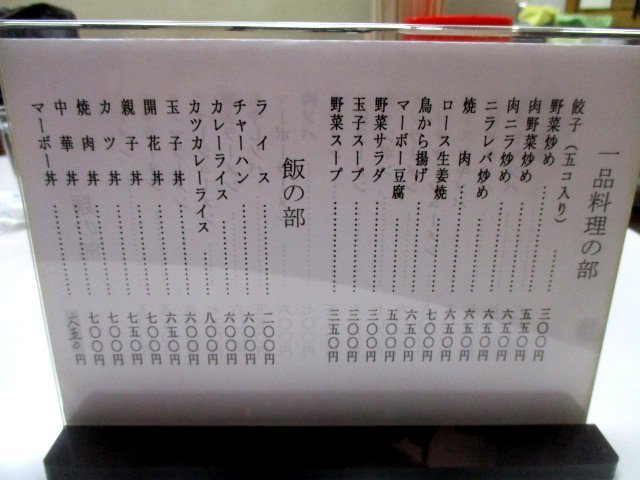 一品料理の部
餃子（五コ入り）…………三〇〇円
野菜炒め…………五五〇円
肉野菜炒め…………六五〇円
肉ニラ炒め…………六五〇円
ニラレバ炒め…………六五〇円
焼肉…………六五〇円
ロース生姜焼…………七〇〇円
鳥から揚げ…………六五〇円
マーボー豆腐…………五〇〇円
野菜サラダ…………三〇〇円
玉子スープ…………三〇〇円
野菜スープ…………三五〇円
飯の部
ライス…………二〇〇円
チャーハン…………六〇〇円
カレーライス…………六〇〇円
カツカレーライス…………八〇〇円
玉子丼…………六〇〇円
開花丼…………六五〇円
親子丼…………七〇〇円
カツ丼…………七五〇円
焼肉丼…………七〇〇円
中華丼…………七〇〇円
マーボー丼…………六五〇円